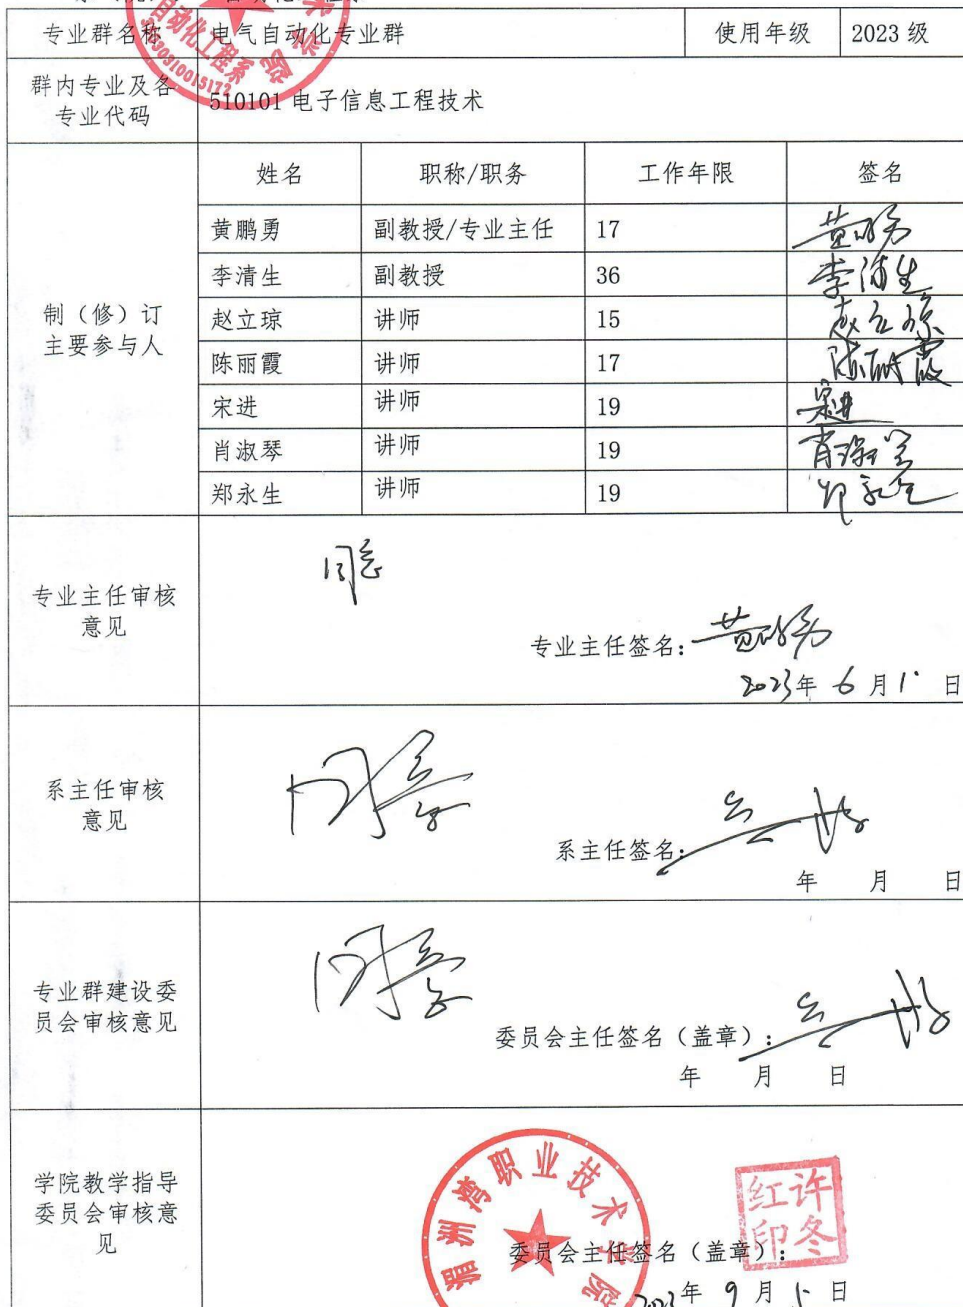 专业群名称 电气自动化专业群 使用年级 2023 级
群内专业及各
专业代码
510101 电子信息工程技术
自动化工程系
姓名 职称/职务 工作年限 签名
制（修）订
主要参与人
黄鹏勇 副教授/专业主任 17 黄鹏勇
李清生 副教授 36 李清生
赵立琼 讲师 15 赵立琼
陈丽霞 讲师 17 陈丽霞
宋进 讲师 19 宋进
肖淑琴 讲师 19 肖淑琴
郑永生 讲师 19 郑永生
专业主任审核
意见
同意
专业主任签名：黄鹏勇
2023年 6 月 日
系主任审核
意见
同意
系主任签名：
年 月 日
专业群建设委
员会审核意见
同意
委员会主任签名（盖章）：
年 月 日
学院教学指导
委员会审核意
见
湄洲湾职业技术学院
委员会主任签名（盖章）：
许冬
红印
2023年 9 月 日